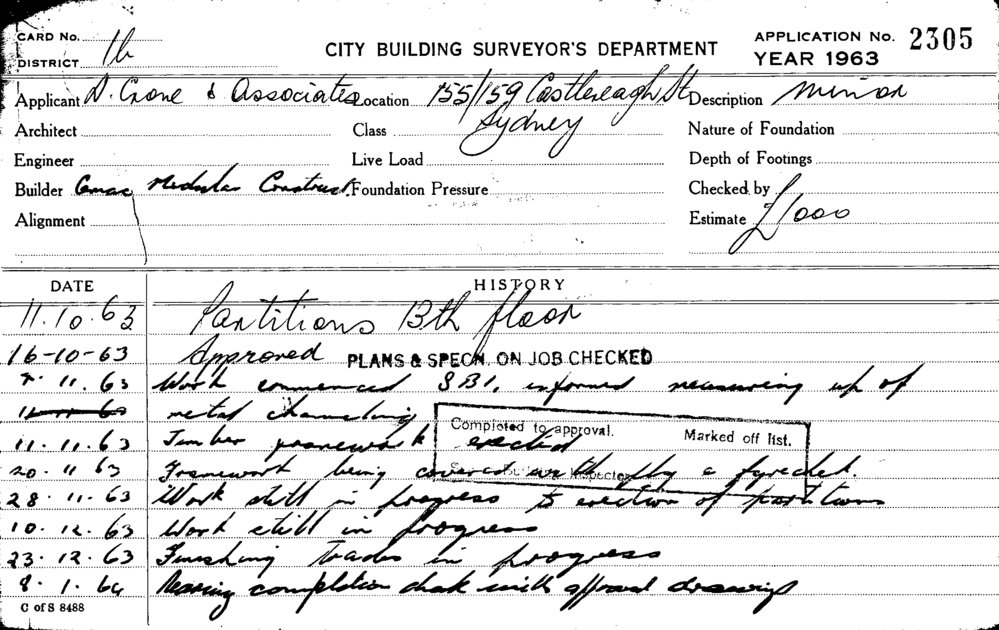 CARD No.
DISTRICT 1b
CITY BUILDING SURVEYOR'S DEPARTMENT
APPLICATION No. 2305
YEAR 1963
Applicant D. Crone & Associates Location 155/159 Castlereagh St Description Minor
Architect Class Sydney Nature of Foundation
Engineer Live Load Depth of Footings
Builder Modular Construct. Foundation Pressure Checked by
Alignment Estimate £1000
DATE HISTORY
11.10.63 Partitions 13th floor
16-10-63 Approved PLANS & SPECN. ON JOB CHECKED
11. 63 Work commenced S.B.I. informed measuring up of
metal channeling
Completed to approval. Marked off list.
11. 11. 63 Timber framework erected
20. 11 63 Framework being covered with ply &
28. 11. 63 Work still in progress to erection of partitions
10. 12. 63 Work still in progress
23. 12. 63 Finishing trades in progress
8. 1. 64 Nearing completion check with approved drawings
C of S 8488